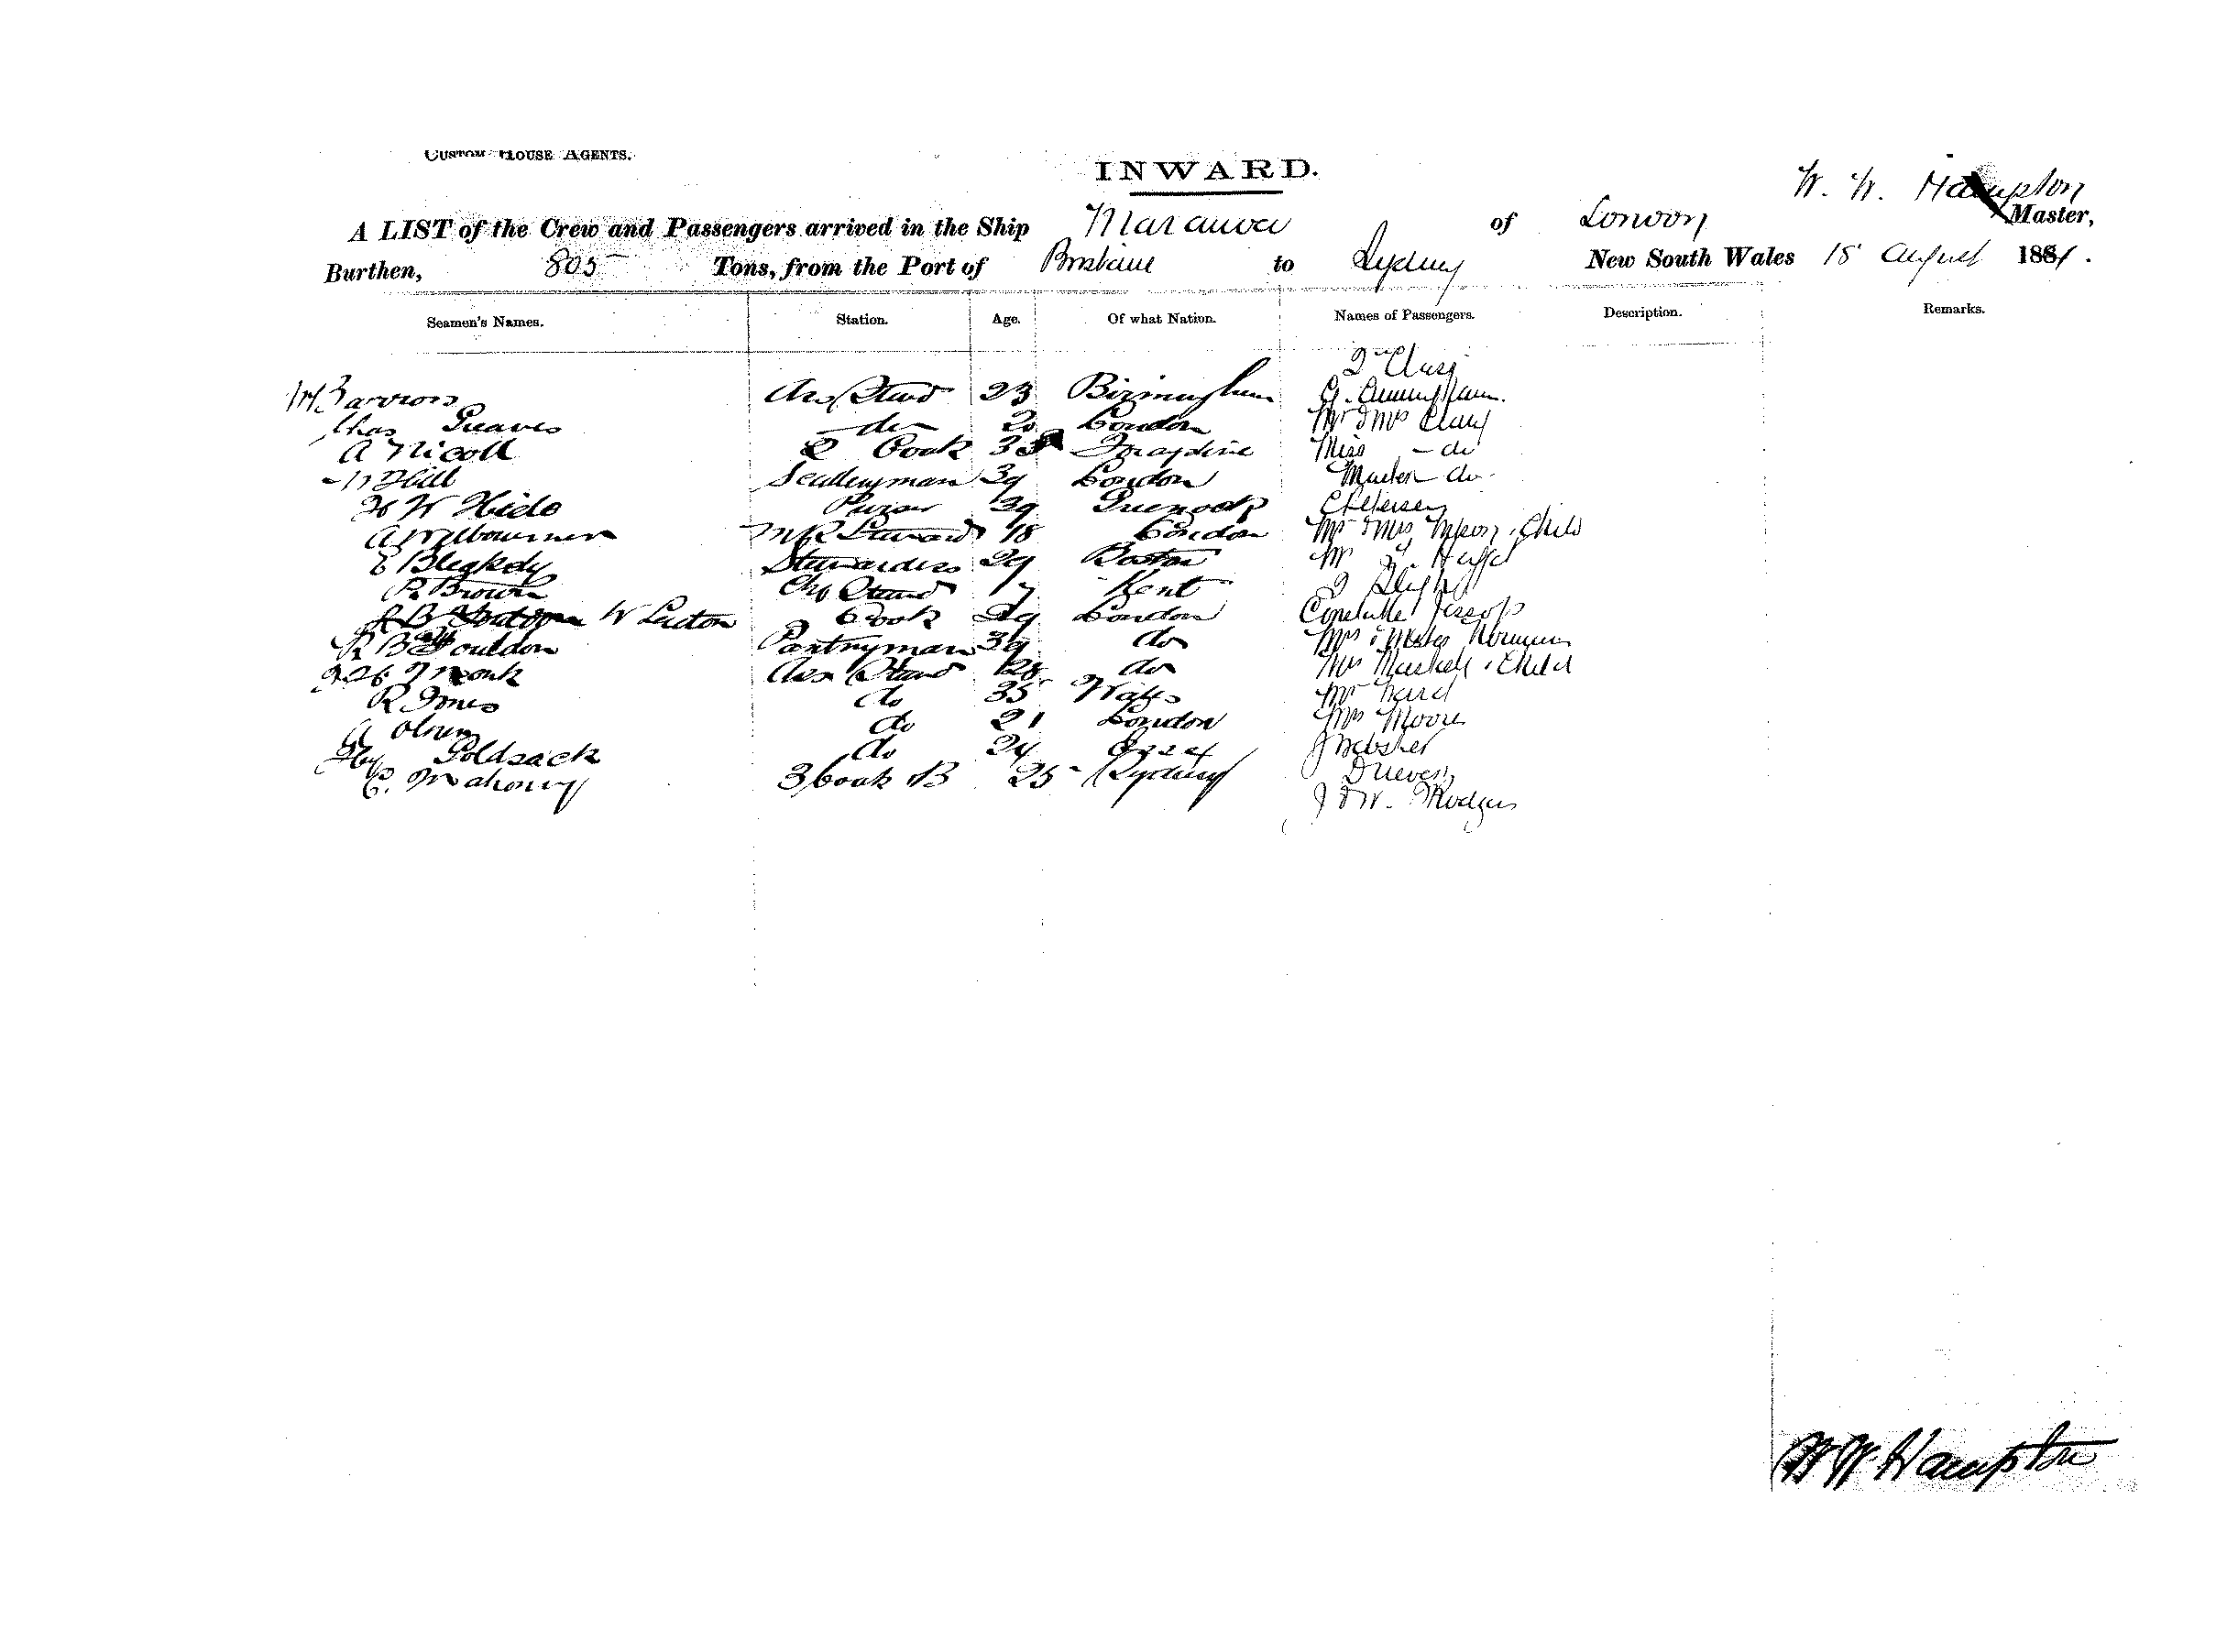 CUSTOM HOUSE AGENTS.
INWARD.
W. W. Hampton
A LIST of the Crew and Passengers arrived in the Ship Maranoa of London Master,
Burthen, 805 Tons, from the Port of Brisbane to Sydney New South Wales 15 August 1881.
Seamen's Names. Station. Age. Of what Nation. Names of Passengers. Description. Remarks.
2nd Class
Barrons 23 Birmingham G. Cunningham
Chas Greaves do 20 London Mr & Mrs Clary
A Nicoll 2 Cook 33 Miss do
Hill Sculleryman 39 London Master do
H W Hide Purser 39 Greenock C Petersen
A Melbourne Steward 18 London Mr & Mrs Child
E Stewardess 29 Boston Mr
R Brown Stewd 17 Kent
W Luton Cook 29 London Constable Jessop
R B Gouldon Pantryman 39 do Mrs & Master Norman
Monk Ass Steward 28 do Mrs Maskell & Child
R Jones do 35 Wales Mr Ward
A Olsen do 21 London Mrs Moore
Goldsack do 24 J Webster
C. Mahony 3 Cook B 25 Sydney
J & W. Rodgers
W W Hampton